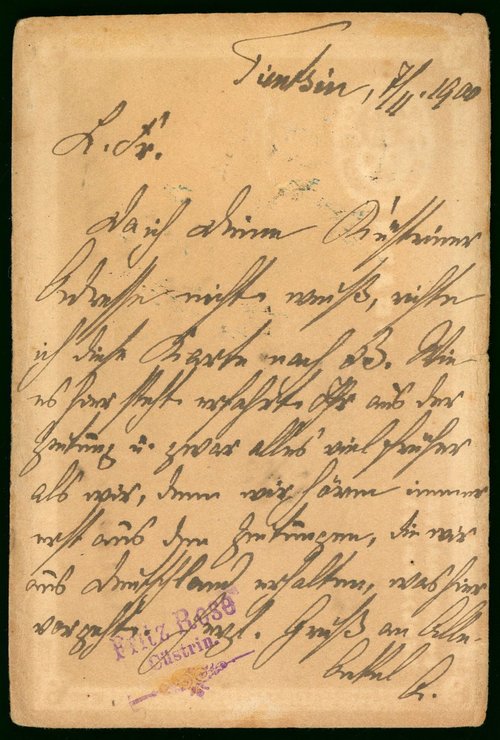 Tientsin, 7/11. 1900
L. Fr.
Da ich Deine Küstriner
Adresse nicht weiß, richte
ich diese Karte nach B. Wie
es hier steht erfahrt Ihr aus der
Zeitung u. zwar alles viel früher
als wir, denn wir hören immer
erst aus den Zeitungen, die wir
aus Deutschland erhalten, was hier
vorgeht. Hzl. Gruß an Alle
Onkel R.
Fritz Rose
Cüstrin.